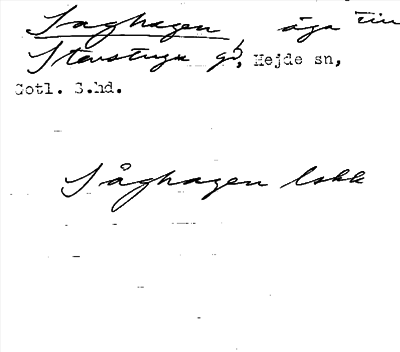 Saghagen, äga till
Stavstuga gd, Hejde sn,
Gotl. S.hd.
Såghagen lokk